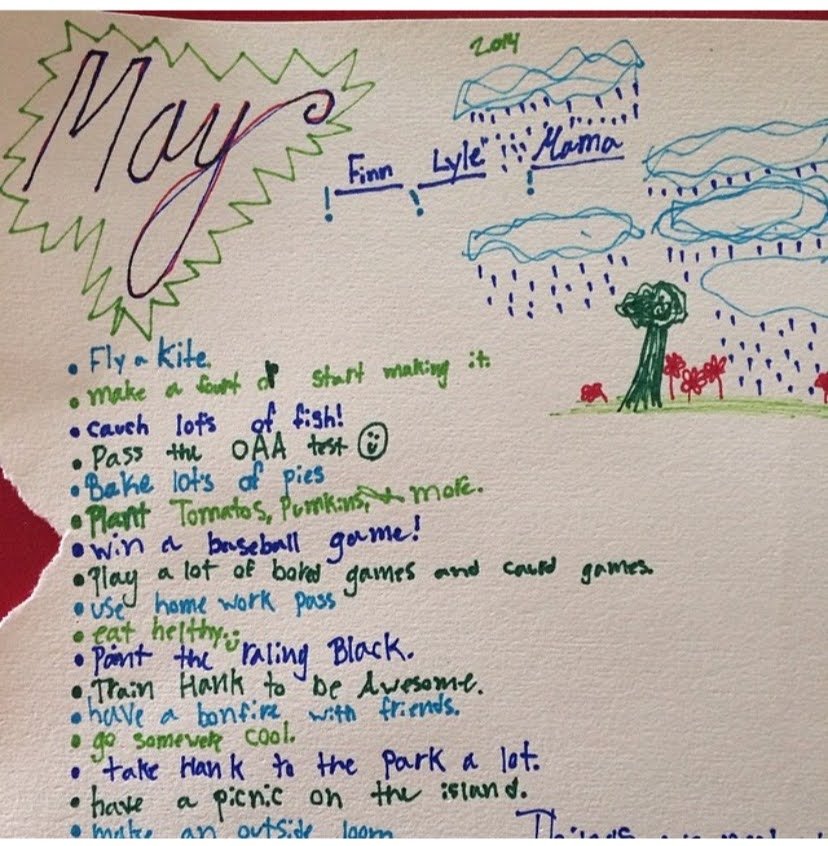 2014
May
Finn Lyle Mama
• Fly a Kite.
• make a fourt or start making it.
• cauch lots of fish!
• Pass the OAA test
• Bake lot's of pies
• Plant Tomatos, Pumkins, & more.
• win a baseball game!
• Play a lot of bored games and caurd games.
• use home work pass
• eat helthy.
• Paint the raling Black.
• Train Hank to be Awesome.
• have a bonfire with friends.
• go somewere cool.
• take Hank to the park a lot.
• have a picnic on the island.
• make an outside loom
Things